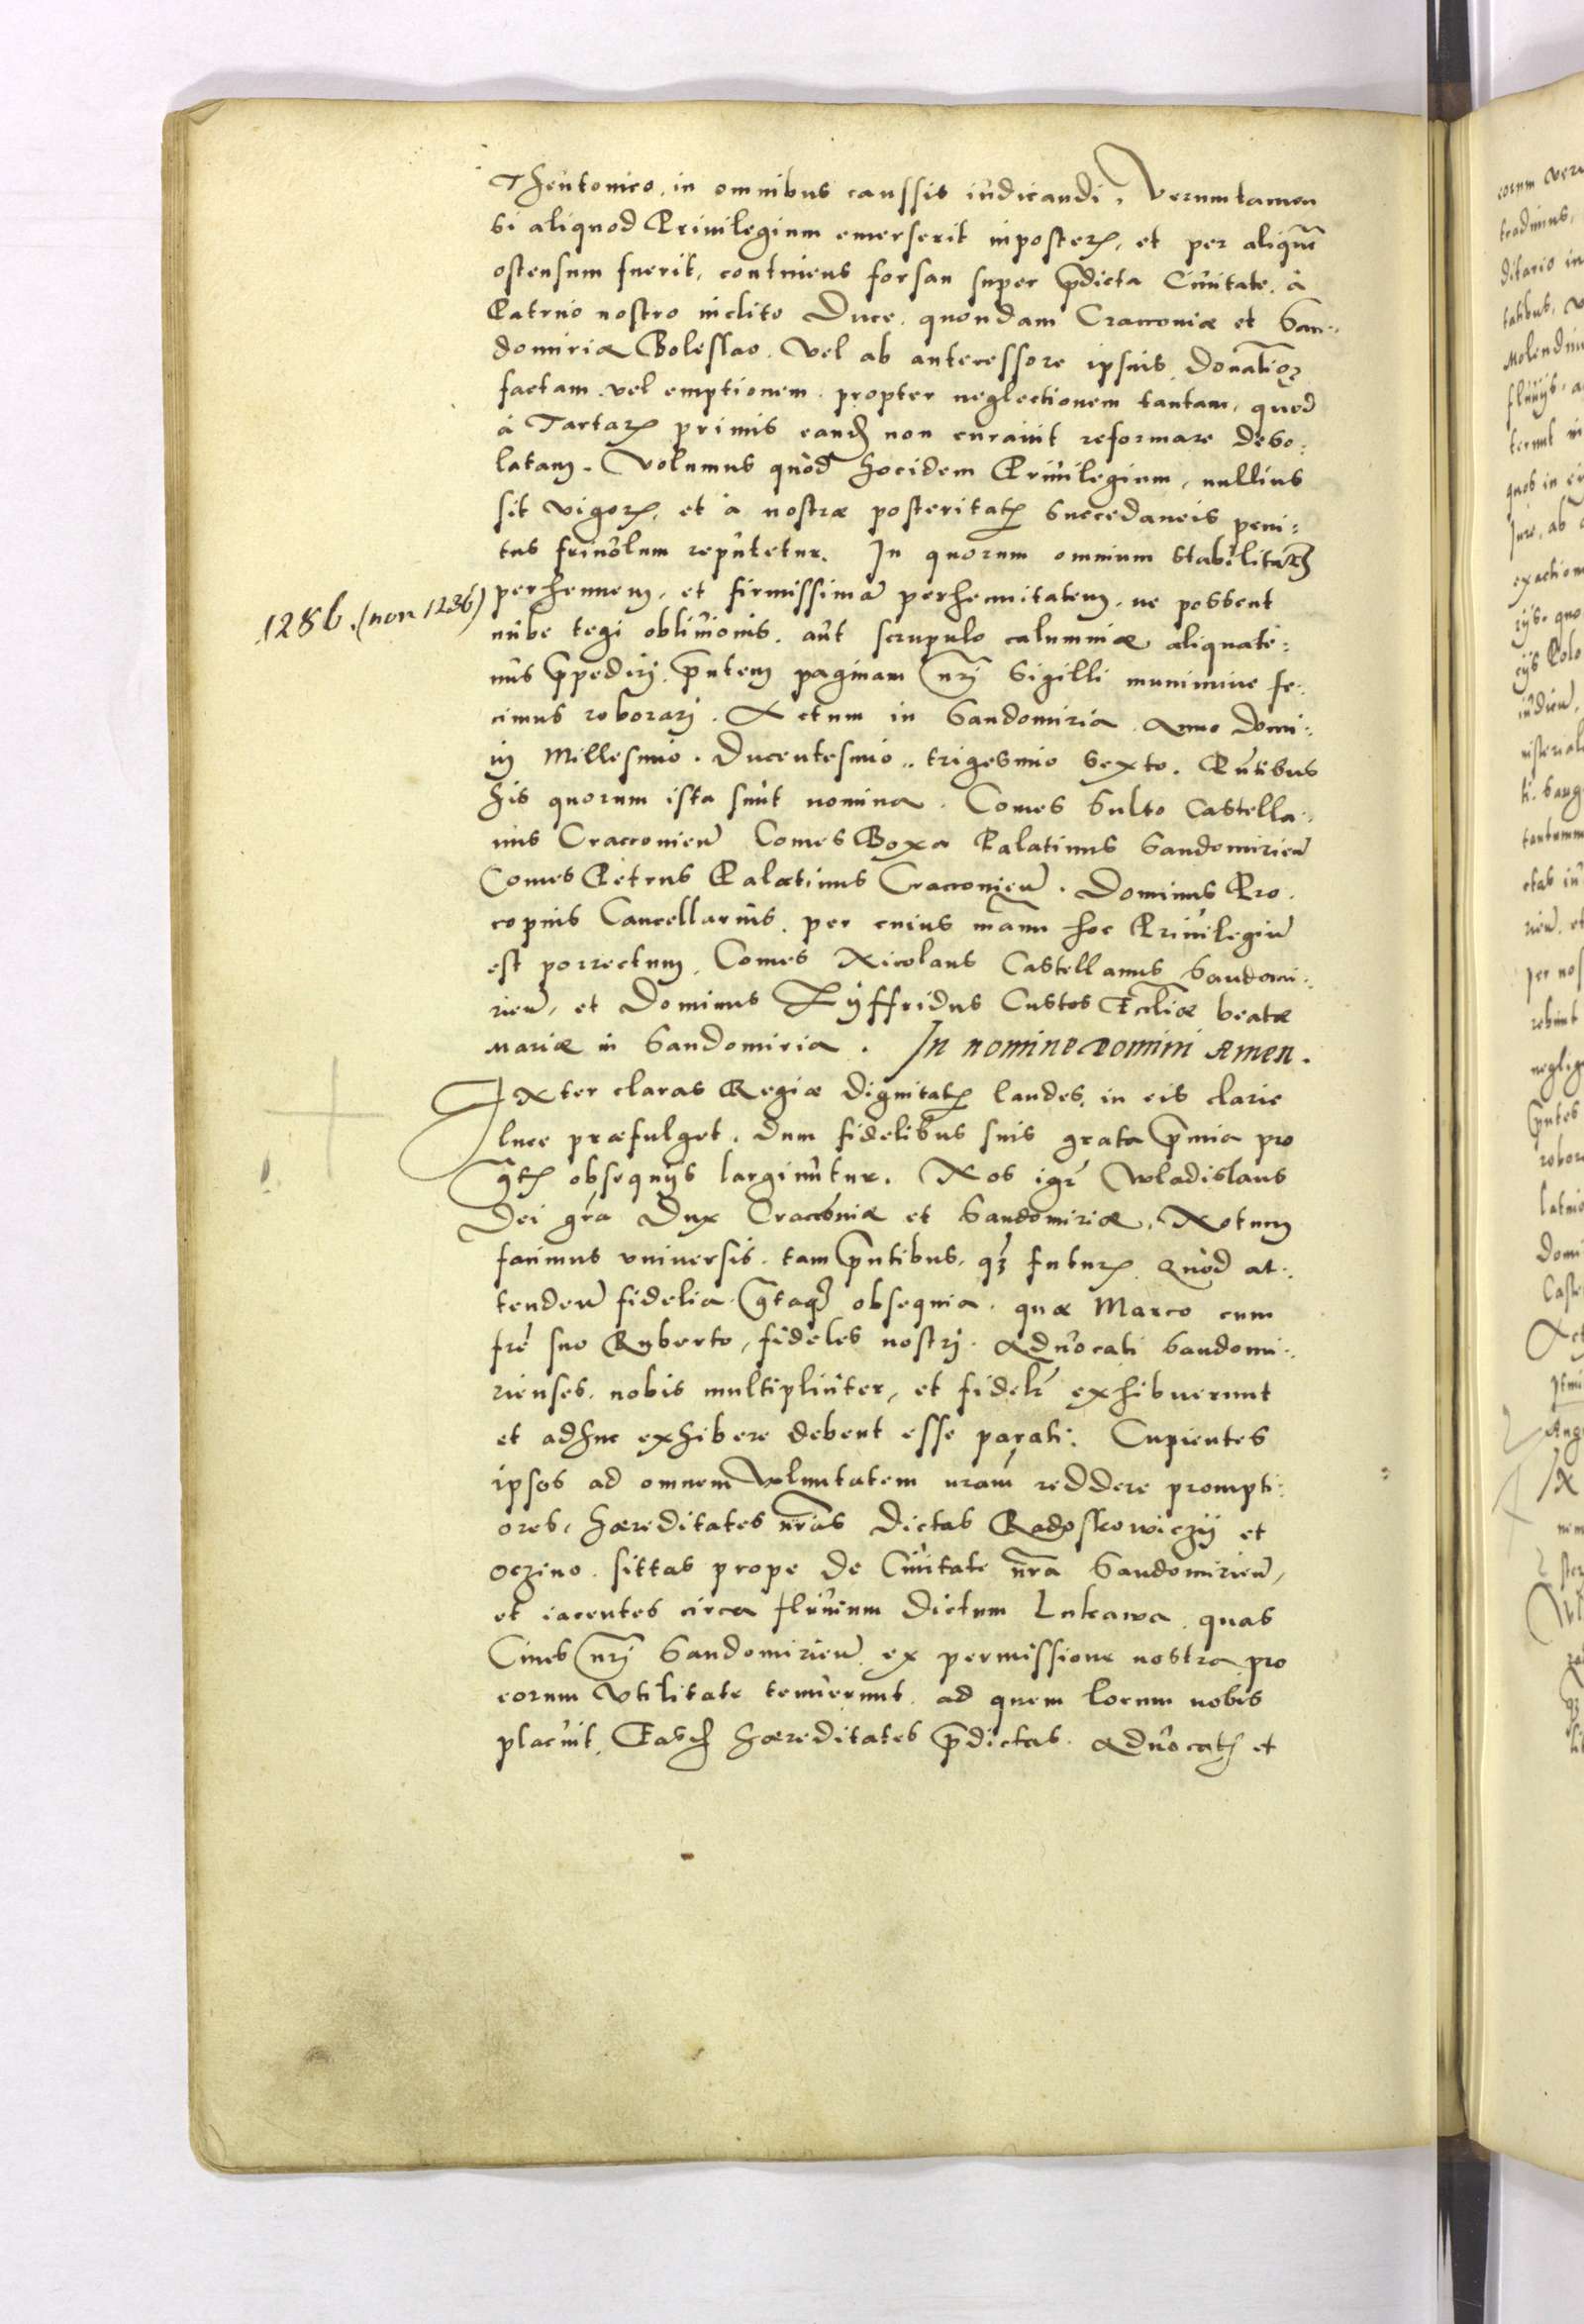 Theutonico, in omnibus caussis iudicandi. Verumtamen
si aliquod Privilegium emerserit inposteru, et per aliquē
ostensum fuerit, continens forsan super p̄dicta Civitate, à
Patruo nostro inclito Duce, quondam Cracoviæ et San:
domiriæ Boleslao. Vel ab antecessore ipsius, Donatioȝ
factam, vel emptionem, propter neglectionem tantam, quod
à Tartaris primis eandē non curavit reformare deso:
latam. Volumus quòd hocidem Privilegium, nullius
sit vigoris, et à nostræ posteritatis succedaneis peni:
tus frivolum reputetur. In quorum omnium stabilitatē
perhennem, et firmissimā perhennitatem, ne possent
1286. (non 1236)
nube tegi oblivionis, aut scrupulo calumniæ aliquate:
nus p̄pediri, p̄ntem paginam nr̄i Sigilli munimine fe:
cimus roborari. Actum in Sandomiria Anno Domi:
ni Millesimo. Ducentesimo. trigesimo sexto. P̄ntibus
his quorum ista sunt nomina. Comes Sulto Castella:
nus Cracovien̄ Comes Boxa Palatinus Sandomirien̄
Comes Petrus Palatinus Cracovien̄. Dominus Pro:
copius Cancellarius, per cuius manū hoc Privilegiū
est porrectum, Comes Nicolaus Castellanus Sandomi:
rien̄, et Dominus Zyffridus Custos Eccliæ beatæ
Mariæ in Sandomiria. In nomine Domini Amen.
Inter claras Regiæ dignitatis laudes, in eis clarie
luce præfulget, dum fidelibus suis grata p̄mia pro
gr̄tis obsequijs largiuntur. Nos igr̄ Wladislaus
Dei grā Dux Cracoviæ et Sandomiriæ. Notum
facimus universis, tam p̄ntibus, qȝ futuris Quòd at:
tenden̄ fidelia gr̄taqȝ obsequia, quæ Marco cum
frē suo Ryberto, fideles nostri Advocati Sandomi:
rienses, nobis multipliciter, et fidelr̄ exhibuerunt
et adhuc exhibere debent esse parati: Cupientes
ipsos ad omnem Voluntatem nram̄ reddere prompti:
ores, hæreditates nr̄as dictas Radoskowiczij et
Oczino, sittas prope de Civitate nr̄a Sandomirien̄,
et iacentes circa fluvium dictum Lukawa, quas
Cives nr̄i Sandomirien̄, ex permissione nostra pro
eorum Utilitate tenuerunt, ad quem locum nobis
placuit, Easdē hæreditates p̄dictas Advocatis et